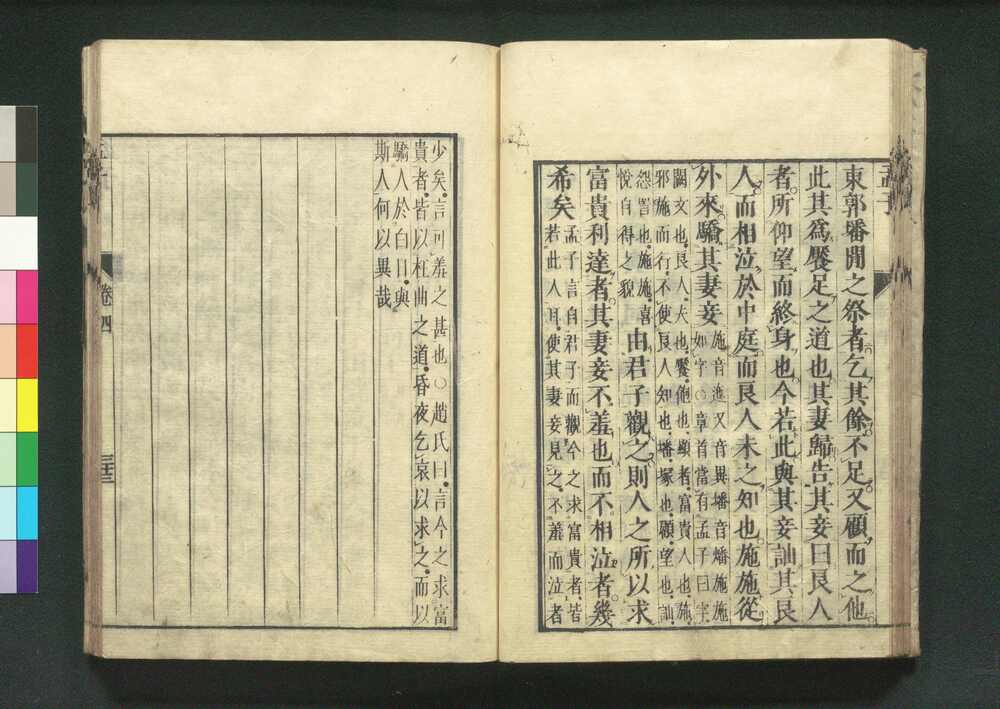 孟子
東郭墦閒之祭者乞其餘不足又顧而之他
此其爲饜足之道也其妻歸告其妾曰良人
者所仰望而終身也今若此與其妾訕其良
人而相泣於中庭而良人未之知也施施從
外來驕其妻妾
施音迤又音異墦音燔施施
如字○章首當有孟子曰字
闕文也良人夫也饜飽也顯者富貴人也施
邪施而行不使良人知也墦塚也顧望也訕
怨詈也施施喜
悅自得之貌
由君子觀之則人之所以求
富貴利達者其妻妾不羞也而不相泣者幾
希矣
孟子言自君子而觀今之求富貴者皆
若此人耳使其妻妾見之不羞而泣者
少矣言可羞之甚也○趙氏曰言今之求富
貴者皆以枉曲之道昏夜乞哀以求之而以
驕人於白日與
斯人何以異哉
卷四